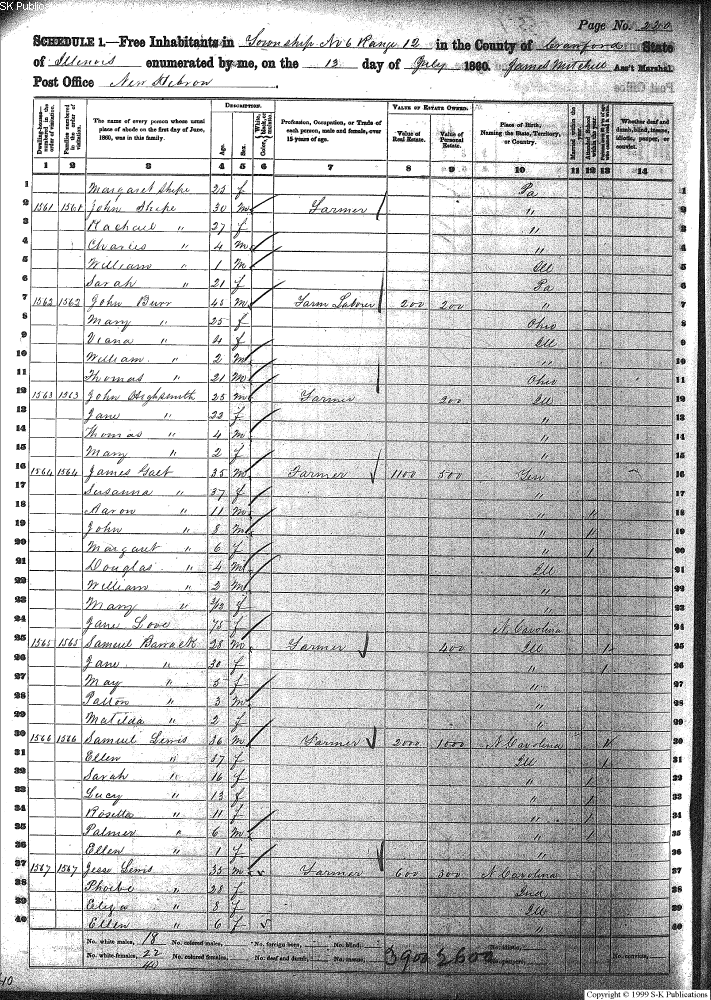 SK Publications
Page No. 220
SCHEDULE 1.—Free Inhabitants in Township No 6 Range 12 in the County of Crawford State
of Illinois enumerated by me, on the 12 day of July 1860. James Mitchell Ass't Marshal.
Post Office New Hebron
Dwelling-houses numbered in the order of visitation.
Families numbered in the order of visitation.
The name of every person whose usual place of abode on the first day of June, 1860, was in this family.
DESCRIPTION.
Age.
Sex.
Color, White, black, or mulatto.
Profession, Occupation, or Trade of each person, male and female, over 15 years of age.
VALUE OF ESTATE OWNED.
Value of Real Estate.
Value of Personal Estate.
Place of Birth, Naming the State, Territory, or Country.
Married within the year.
Whether deaf and dumb, blind, insane, idiotic, pauper, or convict.
1 2 3 4 5 6 7 8 9 10 11 12 13 14
1 Margaret Shipe 23 f Pa 1
2 1561 1561 John Shipe 30 m Farmer " 2
3 Rachael " 27 f " 3
4 Charles " 4 m " 4
5 William " 1 m Ill 5
6 Sarah " 21 f Pa 6
7 1562 1562 John Burr 45 m Farm Laborer 200 200 " 7
8 Mary " 25 f Ohio 8
9 Viana " 4 f Ill 9
10 William " 2 m " 10
11 Thomas " 21 m Ohio 11
12 1563 1563 John Highsmith 25 m Farmer 200 Ill 12
13 Jane " 22 f " 13
14 Thomas " 4 m " 14
15 Mary " 2 f " 15
16 1564 1564 James Galt 35 m Farmer 1100 500 Ten 16
17 Susanna " 37 f " 17
18 Aaron " 11 m " 18
19 John " 8 m " 19
20 Margaret " 6 f " 1 20
21 Douglas " 4 m Ill 21
22 William " 2 m " 22
23 Mary " 3/12 f " 23
24 Jane Love 75 f N Carolina 24
25 1565 1565 Samuel Barrack 28 m Farmer 400 Ill 1 25
26 Jane " 30 f " 1 26
27 May " 5 f " 27
28 " 3 m " 28
29 Matilda " 2 f " 29
30 1566 1566 Samuel Lewis 36 m Farmer 2000 1000 N Carolina 1 30
31 Ellen " 37 f Ill 1 31
32 Sarah " 16 f " 1 32
33 Lucy " 13 f " 1 33
34 Rosetta " 11 f " 1 34
35 Palmer " 6 m " 1 35
36 Ellen " 1 f " 36
37 1567 1567 Jesse Lewis 35 m Farmer 600 300 N Carolina 37
38 Phoebe " 28 f Ind 38
39 Eliza " 8 f Ill 39
40 Ellen " 6 f " 40
No. white males, 18 No. colored males, No. foreign born, No. blind,
No. white females, 22 No. colored females, No. deaf and dumb, No. insane, 3900 2600
40
Copyright © 1999 S-K Publications